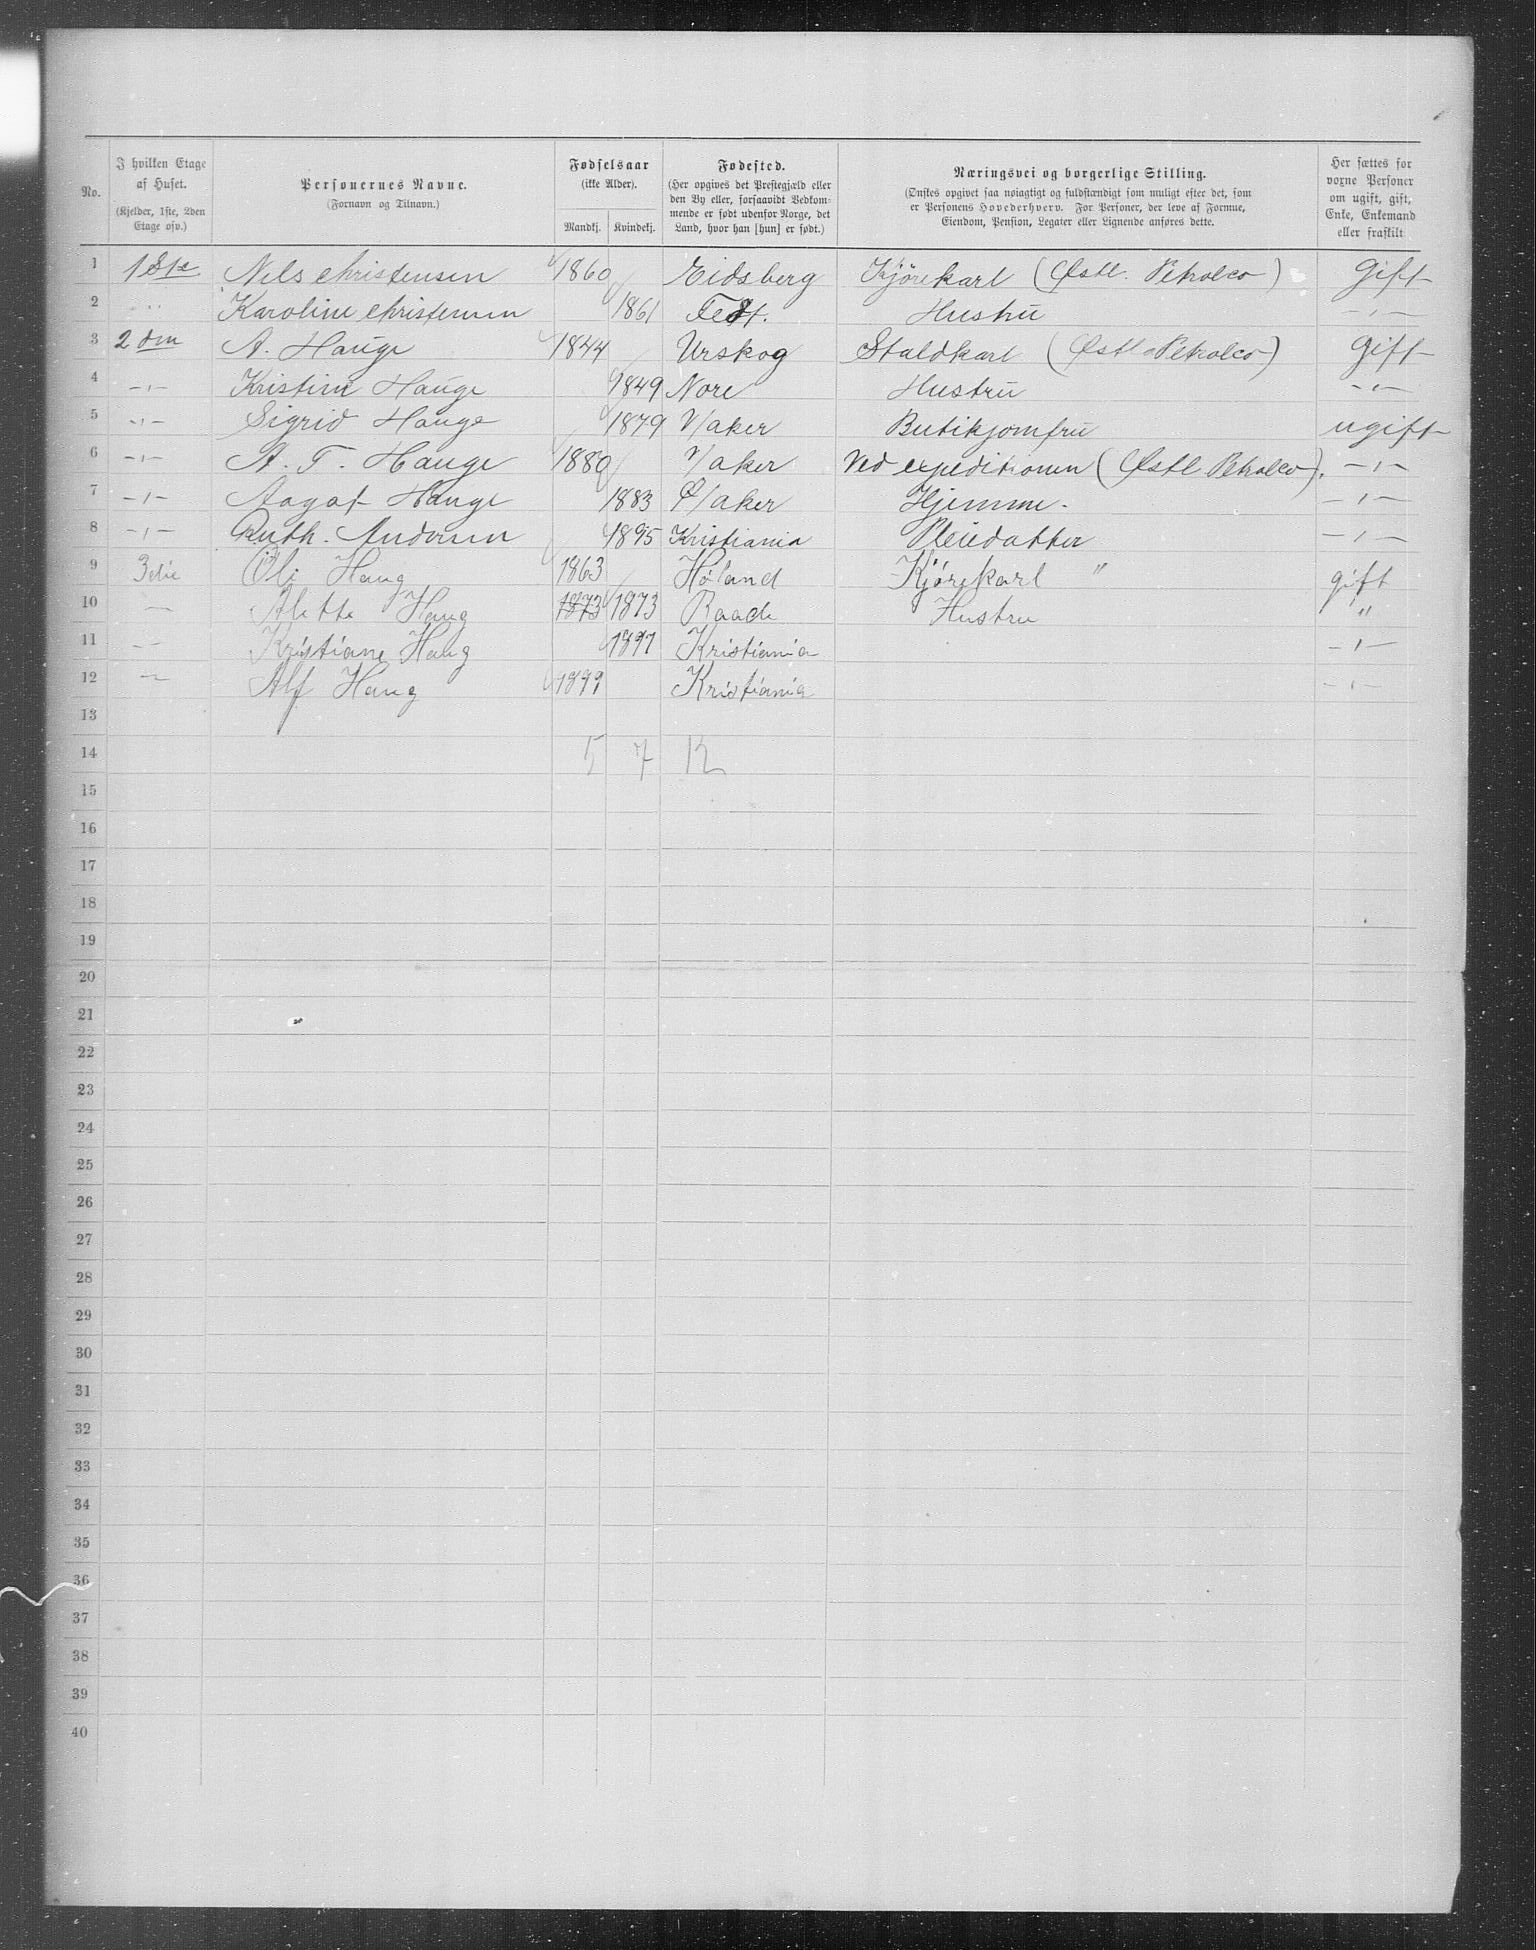 No. | I hvilken Etage af Huset. (Kjelder, 1ste, 2den Etage osv.) | Personernes Navne. (Fornavn og Tilnavn.) | Fødselsaar (ikke Alder). Mandkj. | Kvindekj. | Fødested. (Her opgives det Prestegjæld eller den By eller, forsaavidt Vedkommende er født udenfor Norge, det Land, hvor han [hun] er født.) | Næringsvei og borgerlige Stilling. (Ønskes opgivet saa nøiagtigt og fuldstændigt som muligt efter det, som er Personens Hovederhverv. For Personer, der leve af Formue, Eiendom, Pension, Legater eller Lignende anføres dette. | Her sættes for voxne Personer om ugift, gift, Enke, Enkemand eller fraskilt
1 1ste Nels Christensen 1860 Eidsberg Kjørekarl (Østl. Petrolco) Gift
2 " Karoline Christensen 1861 Hustru -"-
3 2den A. Hauge 1844 Urskog Staldkarl (Østl. Petrolco) Gift
4 -"- Kristine Hauge 1849 Nore Hustru -"-
5 -"- Sigrid Hauge 1879 V/aker Butikjomfru ugift
6 -"- A. T. Hauge 1880 V/aker Ved expeditionen (Østl. Petrolco). -"-
7 -"- Aagot Hauge 1883 Ø/aker Hjemme. -"-
8 -"- Ruth. Andersen 1895 Kristiania Pleiedatter -"-
9 3die Ole Haug 1863 Høland Kjørekarl " gift
10 — Alette Haug 1873 1873 Raade Hustru "
11 — Kristiane Haug 1897 Kristiania -"-
12 — Alf Haug 1899 Kristiania -"-
13
14 5 7 12
15
16
17
18
19
20
21
22
23
24
25
26
27
28
29
30
31
32
33
34
35
36
37
38
39
40